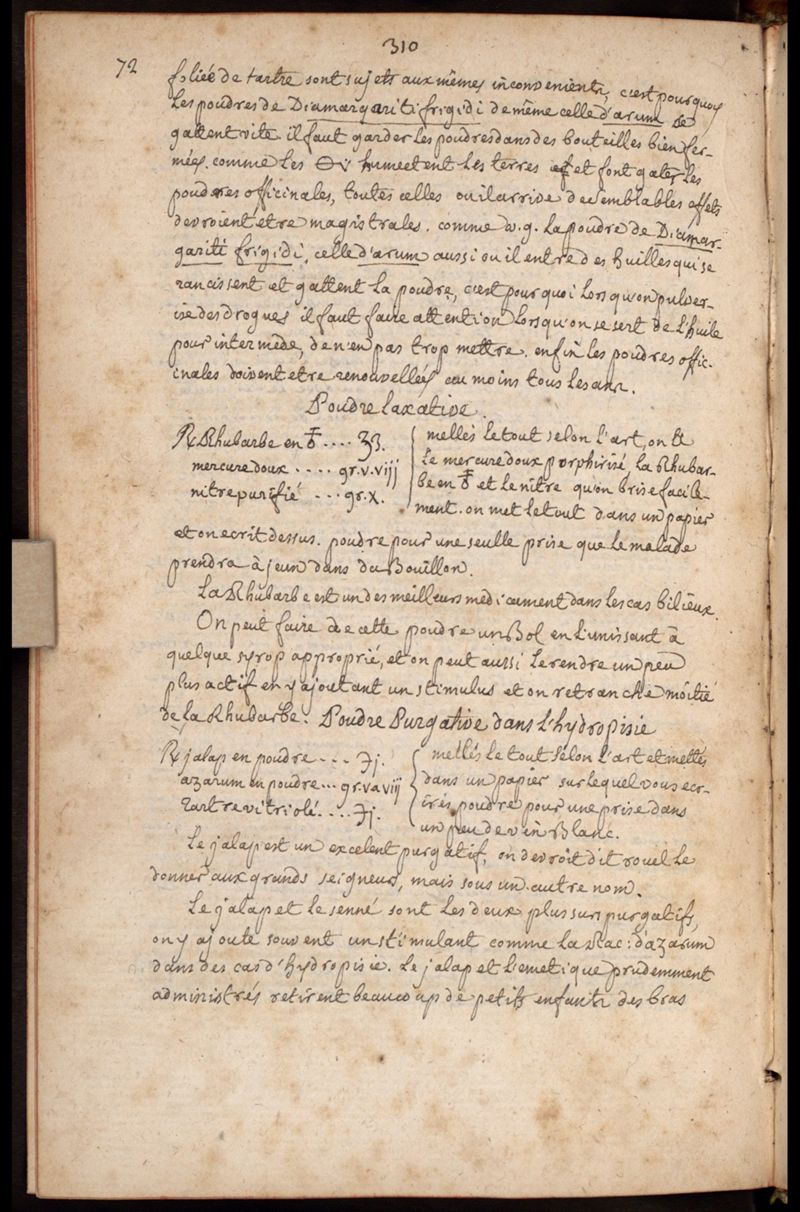 310
72
foliée de tartre sont sujets aux mêmes inconvenients, c'est pourquoy
Les poudres de Diamargariti frigidi de même celle d'arum se
gattent vite il faut garder les poudres dans des bouteilles bien fer-
mées. comme Les humectent les terres et font gater Les
poudres officinales, toutes celles ou il arrive de semblables effets
devroient etre magistrales. comme v.g. La poudre de Diamar-
gariti frigidi, celle d'arum aussi ou il entre des huilles qui se
rancissent et gattent La poudre, c'est pourquoi Lorsqu'on pulver-
ise des drogues il faut faire attention Lorsqu'on se sert de L'huile
pour intermède, de n'en pas trop mettre. enfin les poudres offic-
inales doivent etre renouvellées au moins tous Les ans.
Poudre Laxative.
℞ Rhubarbe en .... ʒʒ.
mercure doux .... gr. v. viij
nitre purifié ... gr. x.
mellés Le tout selon L'art, on
Le mercure doux porphirisé, La Rhubar-
be en et Le nitre qu'on brise facile-
ment. on met Le tout dans un papier
et on ecrit dessus. poudre pour une seulle prise que Le malade
prendra à jeun dans du Bouillon.
La Rhubarbe est un des meilleurs medicament dans les cas bilieux.
On peut faire de cette poudre un Bol en L'unissant à
quelque syrop approprié, et on peut aussi Le rendre un peu
plus actif en y ajoutant un stimulus et on retranche moitié
de La Rhubarbe. Poudre Purgative dans L'hydropisie
℞ jalap en poudre ... ℈j.
azarum en poudre ... gr. v a vij
Tartre vitriolé .... ℈j.
mellés Le tout selon L'art et mettés
dans un papier sur Lequel vous ecr-
irés poudre pour une prise dans
un peu de vin Blanc.
Le jalap est un excelent purgatif, on devroit dit rouel Le
donner aux grands seigneurs, mais sous un autre nom.
Le jalap et Le senné sont Les deux plus surs purgatifs,
on y ajoute souvent un stimulant comme La Rac: d'azarum
dans des cas d'hydropisie. Le jalap et L'emetique prudemment
administrés retirent beaucoup de petits enfants des bras